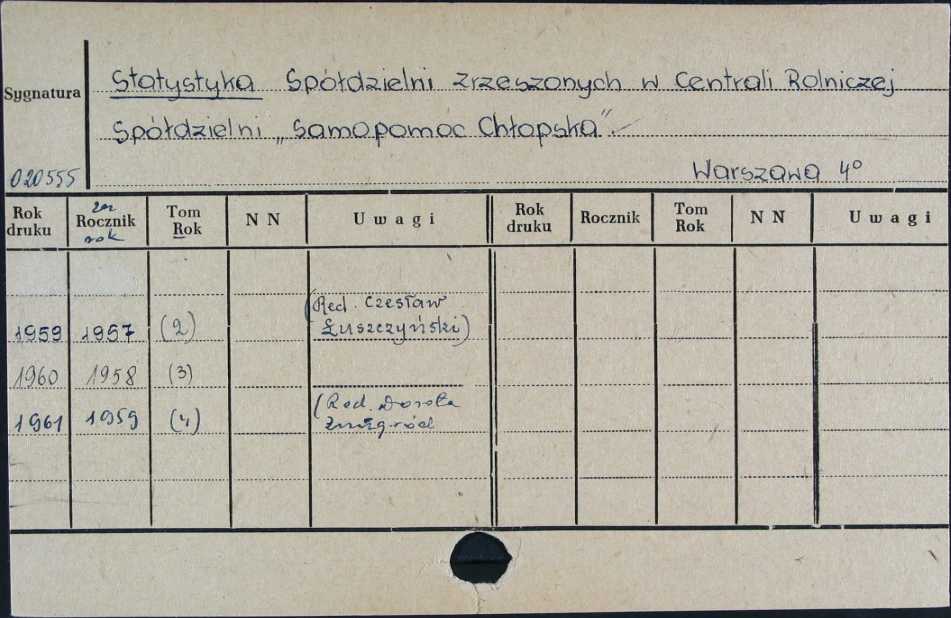 Statystyka Spółdzielni Zrzeszonych w Centrali Rolniczej
Sygnatura
Spółdzielni „Samopomoc Chłopska”.
020555
Warszawa 4°
Rok druku za Rocznik rok Tom Rok N N Uwagi Rok druku Rocznik Tom Rok N N Uwagi
(Red. Czesław
1959 1957 (2) Łuszczyński)
1960 1958 (3)
1961 1959 (4) (Red. Dorota
Żmigród